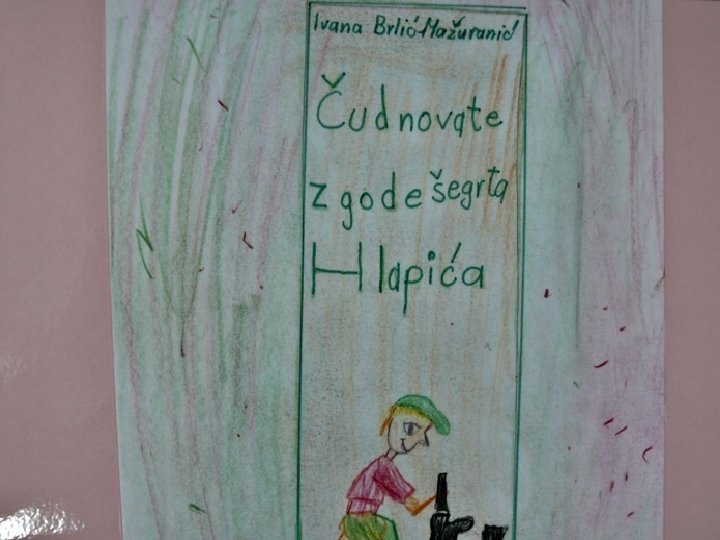 Ivana Brlić-Mažuranić
Čudnovate
zgode šegrta
Hlapića